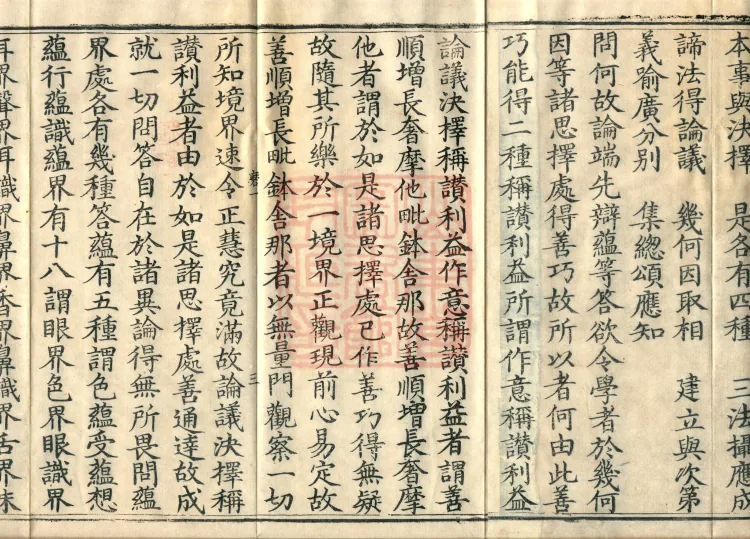 本事與決擇　是各有四種　三法攝應成
諦法得論議　幾何因取相　建立與次第
義喻廣分別　集總頌應知
問何故論端先辯蘊等答欲令學者於幾何
因等諸思擇處得善巧故所以者何由此善
巧能得二種稱讃利益所謂作意稱讃利益
論議決擇稱讃利益作意稱讃利益者謂善
順增長奢摩他毗鉢舍那故善順增長奢摩
他者謂於如是諸思擇處已作善巧得無疑
故隨其所樂於一境界正觀現前心易定故
善順增長毗鉢舍那者以無量門觀察一切
所知境界速令正慧究竟滿故論議決擇稱
讃利益者由於如是諸思擇處善通達故成
就一切問答自在於諸異論得無所畏問蘊
界處各有幾種答蘊有五種謂色蘊受蘊想
蘊行蘊識蘊界有十八謂眼界色界眼識界
耳界聲界耳識界鼻界香界鼻識界舌界味